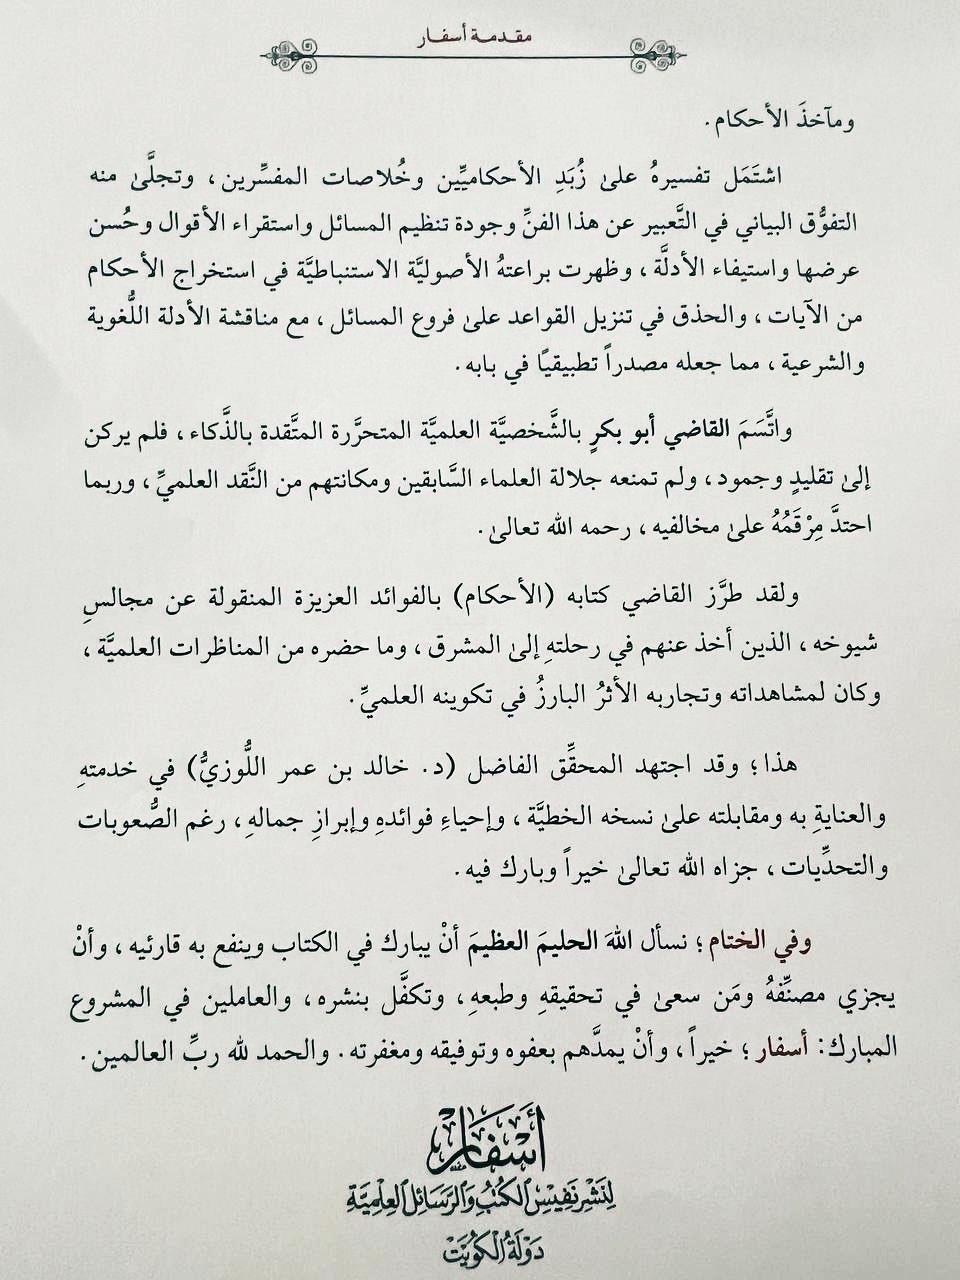 مقدمة أسفار
ومآخذَ الأحكام.
اشتَمَل تفسيرهُ علىٰ زُبَدِ الأحكاميِّين وخُلاصات المفسِّرين، وتجلَّىٰ منه
التفوُّق البياني في التَّعبير عن هذا الفنِّ وجودة تنظيم المسائل واستقراء الأقوال وحُسن
عرضها واستيفاء الأدلَّة، وظهرت براعتهُ الأصوليَّة الاستنباطيَّة في استخراج الأحكام
من الآيات، والحذق في تنزيل القواعد علىٰ فروع المسائل، مع مناقشة الأدلة اللُّغوية
والشرعية، مما جعله مصدراً تطبيقيًا في بابه.
واتَّسَمَ القاضي أبو بكرٍ بالشَّخصيَّة العلميَّة المتحرَّرة المتَّقدة بالذَّكاء، فلم يركن
إلىٰ تقليدٍ وجمود، ولم تمنعه جلالة العلماء السَّابقين ومكانتهم من النَّقد العلميِّ، وربما
احتدَّ مِرْقَمُهُ علىٰ مخالفيه، رحمه الله تعالىٰ.
ولقد طرَّز القاضي كتابه (الأحكام) بالفوائد العزيزة المنقولة عن مجالسِ
شيوخه، الذين أخذ عنهم في رحلتهِ إلىٰ المشرق، وما حضره من المناظرات العلميَّة،
وكان لمشاهداته وتجاربه الأثرُ البارزُ في تكوينه العلميِّ.
هذا؛ وقد اجتهد المحقِّق الفاضل (د. خالد بن عمر اللُّوزيُّ) في خدمتهِ
والعنايةِ به ومقابلته علىٰ نسخه الخطيَّة، وإحياءِ فوائدهِ وإبرازِ جمالهِ، رغم الصُّعوبات
والتحدِّيات، جزاه الله تعالىٰ خيراً وبارك فيه.
وفي الختام؛ نسأل اللهَ الحليمَ العظيمَ أنْ يبارك في الكتاب وينفع به قارئيه، وأنْ
يجزي مصنِّفهُ ومَن سعىٰ في تحقيقهِ وطبعهِ، وتكفَّل بنشره، والعاملين في المشروع
المبارك: أسفار؛ خيراً، وأنْ يمدَّهم بعفوه وتوفيقه ومغفرته. والحمد لله ربِّ العالمين.
أسفار
لنشر نفيس الكتب والرسائل العلمية
دولة الكويت